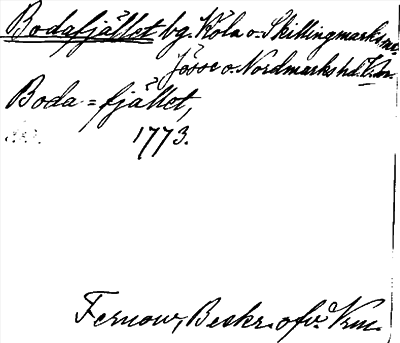 Bodafjället bg. Köla o. Skillingmarks snr
Jösse o. Nordmarks hd. Vrm.
Boda-fjället,
1773.
Fernow, Beskr. öfv. Vrm.